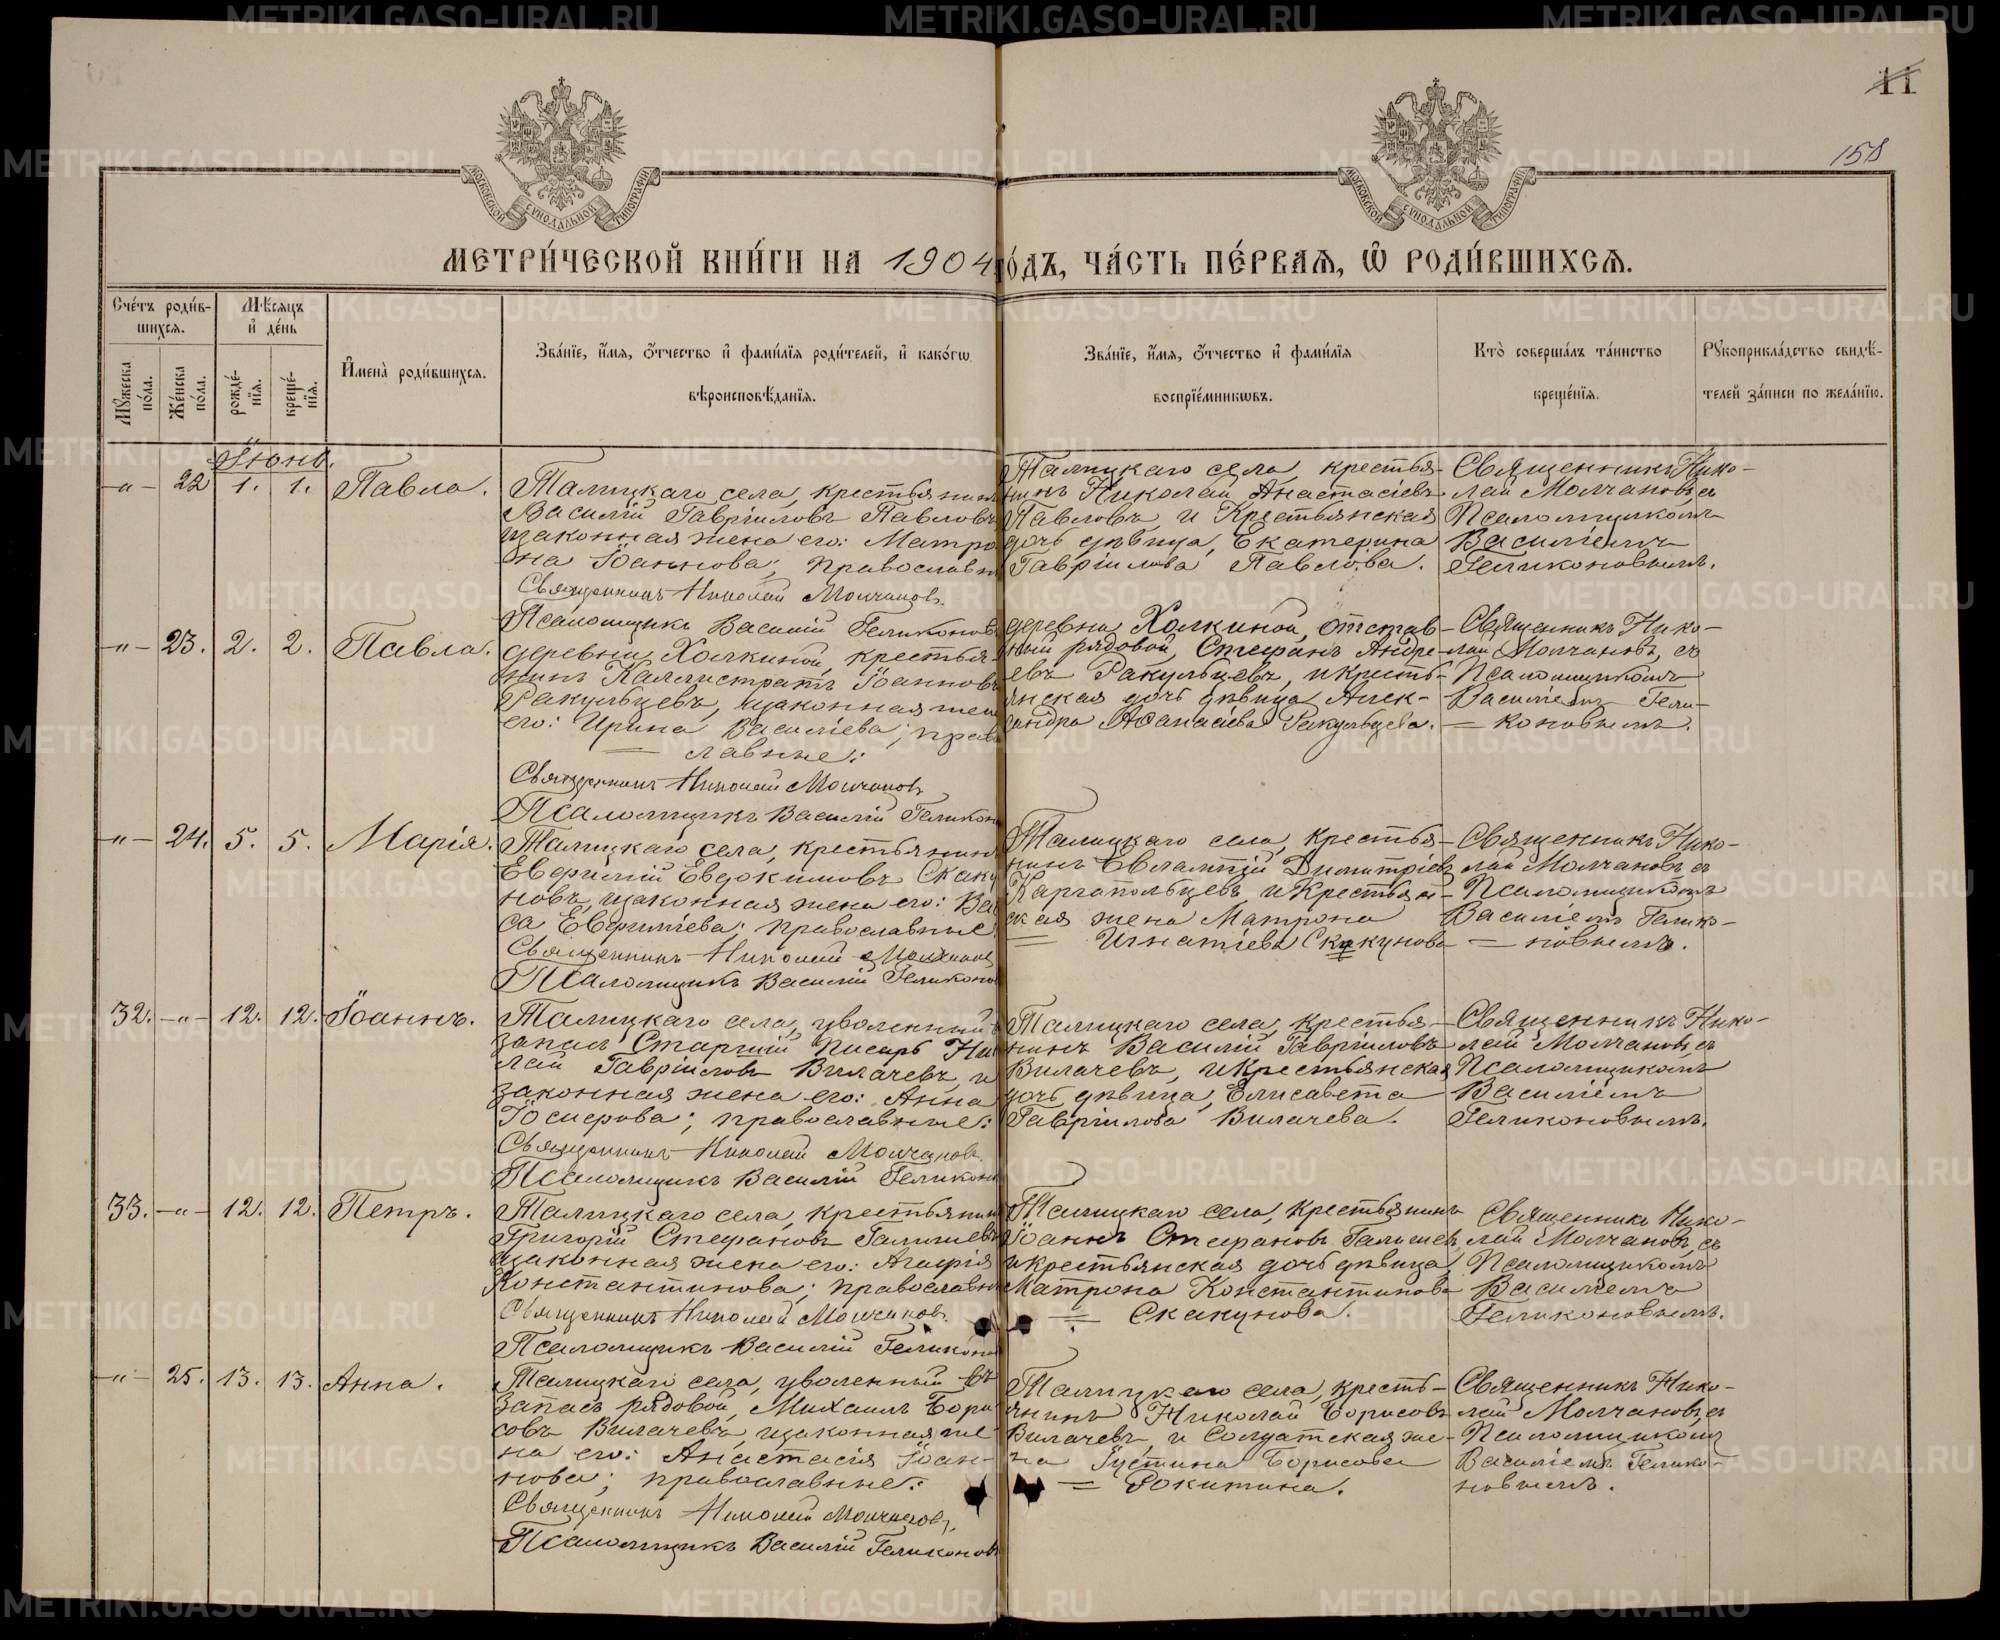 11
158
МОСКОВСКОЙ СѴНОДАЛЬНОЙ ТИПОГРАФІИ
МОСКОВСКОЙ СѴНОДАЛЬНОЙ ТИПОГРАФІИ
МЕТРИ́ЧЕСКОЙ КНИ́ГИ НА 1904 го́дъ, ЧА́СТЬ ПЕ́РВАЯ, Ѡ҆ РОДИ́ВШИХСЯ.
Сче́тъ роди́вшихся.
Мѣ́сяцъ и҆ де́нь
Мꙋ́жеска по́ла.
Же́нска по́ла.
рожде́нїя.
креще́нїя.
И҆мена̀ роди́вшихся.
Зва́нїе, и҆́мя, ѻ҆́тчество и҆ фами́лїя роди́телей, и҆ како́гѡ
вѣроисповѣ́данїя.
Зва́нїе, и҆́мя, ѻ҆́тчество и҆ фами́лїя
воспрїе́мникѡвъ.
Кто̀ соверша́лъ та́инство
креще́нїя.
Рꙋкоприкла́дство свидѣ́телей за́писи по жела́нїю.
Іюнь.
-„- 22 1. 1. Павла.
Талицкаго села, крестьянинъ
Василій Гавріиловъ Павловъ
изаконная жена его: Матро
на Іоаннова; православн
Священникъ Николай Молчановъ.
Псаломщикъ Василій Геликоновъ
Талицкаго села, крестья-
нинъ Николай Анастасіевъ
Павловъ и Крестьянская
дочь дѣвица, Екатерина
Гавріилова Павлова.
Священникъ Нико-
лай Молчановъ, съ
Псаломщикомъ
Василіемъ
Геликоновымъ.
-„- 23. 2. 2. Павла.
деревни Холкиной, крестья-
нинъ Каллистратъ Іоанновъ
Ракульцевъ, изаконная жена
его: Ирина Василіева; право
= лавные:
Священникъ Николай Молчановъ
Псаломщикъ Василій Геликонов
деревни Холкиной, отстав-
ный рядовой, Стефанъ Андре-
евъ Ракульцевъ, икресть-
янская дочь дѣвица Алек-
сандра Аѳанасіева Ракульцева.
Священникъ Нико-
лай Молчановъ, съ
Псаломщикомъ
Василіемъ Гели-
= коновымъ.
-„- 24. 5. 5. Марія.
Талицкаго села, крестьянинъ
Евфимій Евдокимовъ Скаку
новъ, изаконная жена его: Ва
са Евфиміева; православные
Священникъ Николай Молчановъ
Псаломщикъ Василій Геликонов
Талицкаго села, крестья-
нинъ Евлампій Димитріевъ
Каргапольцевъ, и Крестьян-
ская жена Матрона
= Игнатіева Скакунова
Священникъ Нико-
лай Молчановъ съ
Псаломщикомъ
Василіемъ Гелико-
= новымъ.
32. -„- 12. 12. Іоаннъ.
Талицкаго села, уволенный въ
запасъ Старшій Писарь Нико
лай Гавріиловъ Вилачевъ, и
законная жена его: Анна
Іосифова; православные:
Священникъ Николай Молчановъ
Псаломщикъ Василій Геликонов
Талицкаго села, крестья-
нинъ Василій Гавріиловъ
Вилачевъ, икрестьянская
дочь дѣвица, Елисавета
Гавріилова Вилачева.
Священникъ Нико-
лай Молчановъ, съ
Псаломщикомъ
Василіемъ
Геликоновымъ.
33. -„- 12. 12. Петръ.
Талицкаго села, крестьянинъ
Григорій Стефановъ Галишевъ
изаконная жена его: Агафія
Константинова; православн
Священникъ Николай Молчановъ
Псаломщикъ Василій Геликонов
Талицкаго села, крестьянинъ
Іоаннъ Стефановъ Галишев,
икрестьянская дочь дѣвица,
Матрона Константинова
= Скакунова.
Священникъ Нико-
лай Молчановъ, съ
Псаломщикомъ
Василіемъ
Геликоновымъ.
-„- 25. 13. 13. Анна.
Талицкаго села, уволенный въ
Запасъ рядовой, Михаилъ Бори
совъ Вилачевъ, изаконная же
на его: Анастасія Іоан-
нова; православные:
Священникъ Николай Молчановъ.
Псаломщикъ Василій Геликоновъ
Талицкаго села, кресть-
янинъ Николай Борисовъ
Вилачевъ, и Солдатская же-
на Іустина Борисова
= Рокитина.
Священникъ Нико-
лай Молчановъ, съ
Псаломщикомъ
Василіемъ Гелико-
новымъ.